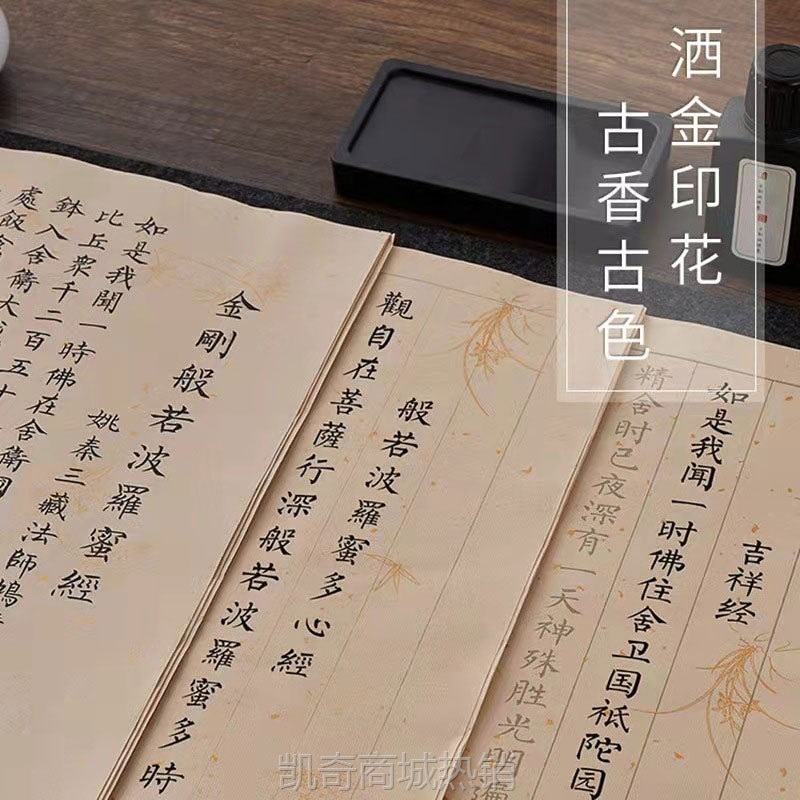 洒金印花
古香古色
吉祥经
如是我闻一时佛住舍卫国祇陀园
精舍时已夜深有一天神殊胜光明遍
般若波羅蜜多心經
觀自在菩薩行深般若波羅蜜多時
金剛般若波羅蜜經
姚秦三藏法師鳩
如是我聞一時佛在舍衛
比丘衆千二百五十
鉢入舍衛大
處飯
凯奇商城热销